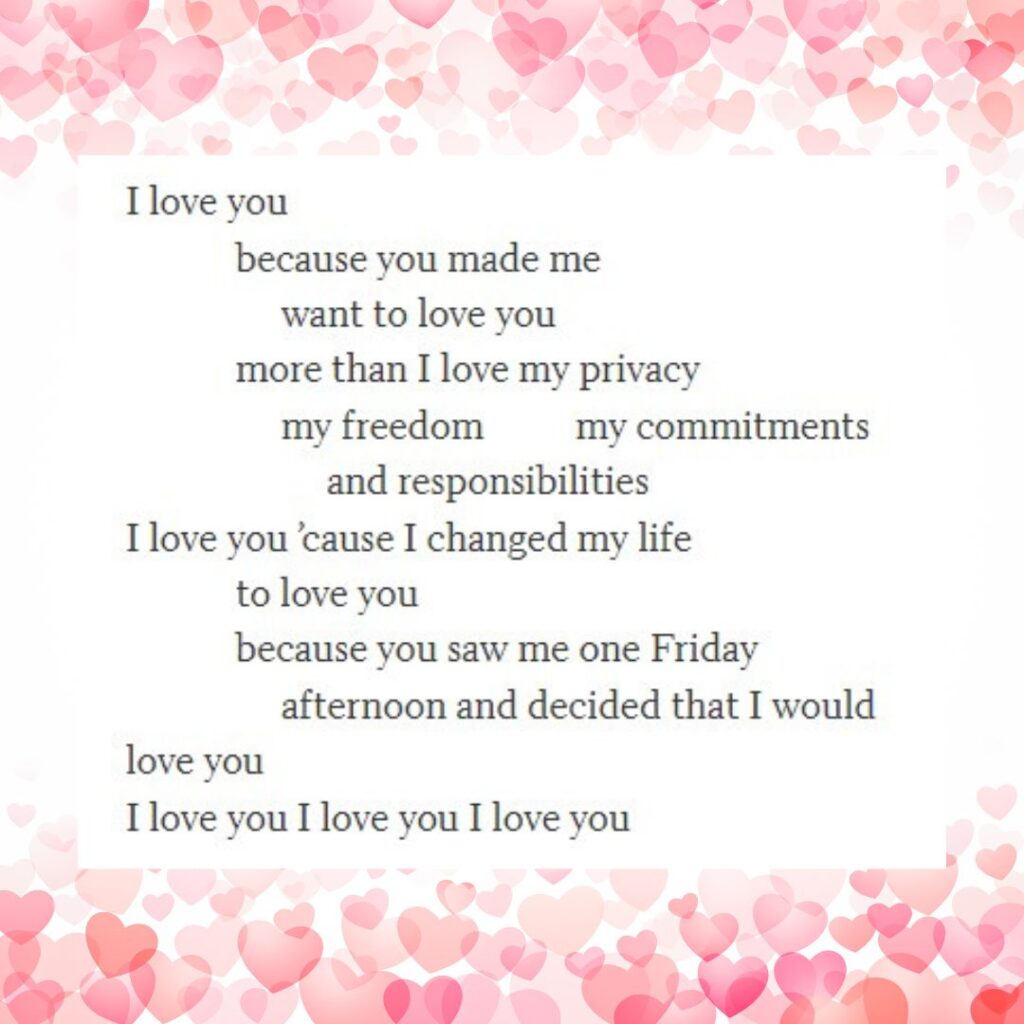 I love you
because you made me
want to love you
more than I love my privacy
my freedom my commitments
and responsibilities
I love you ’cause I changed my life
to love you
because you saw me one Friday
afternoon and decided that I would
love you
I love you I love you I love you